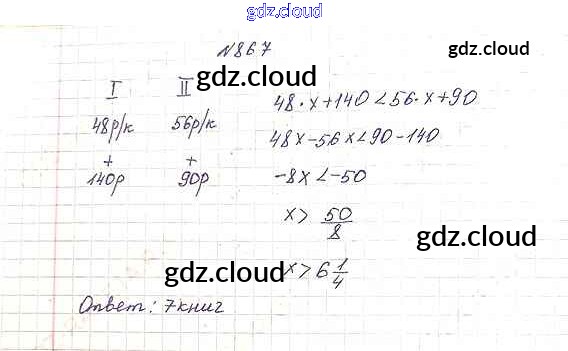 gdz.cloud
N867
gdz.cloud
gdz.cloud
I II
48р/к 56р/к
+ +
140р 90р
48·x+140<56·x+90
48x-56x<90-140
-8x<-50
x> 50/8
x>6 1/4
gdz.cloud
gdz.cloud
Ответ: 7книг
gdz.cloud